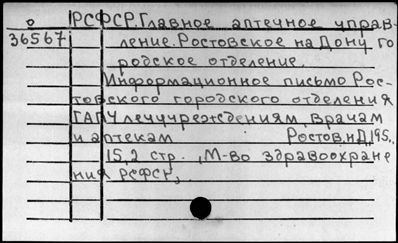 РСФСР. Главное аптечное управ-
36567
ление. Ростовское на Дону го
родское отделение.
Информационное письмо Рос-
товского городского отделения
ГАПУ лечучреждениям, врачам
и аптекам Ростов н/Д, 195.,
15,2 стр. , М-во здравоохране
ния РСФСР,